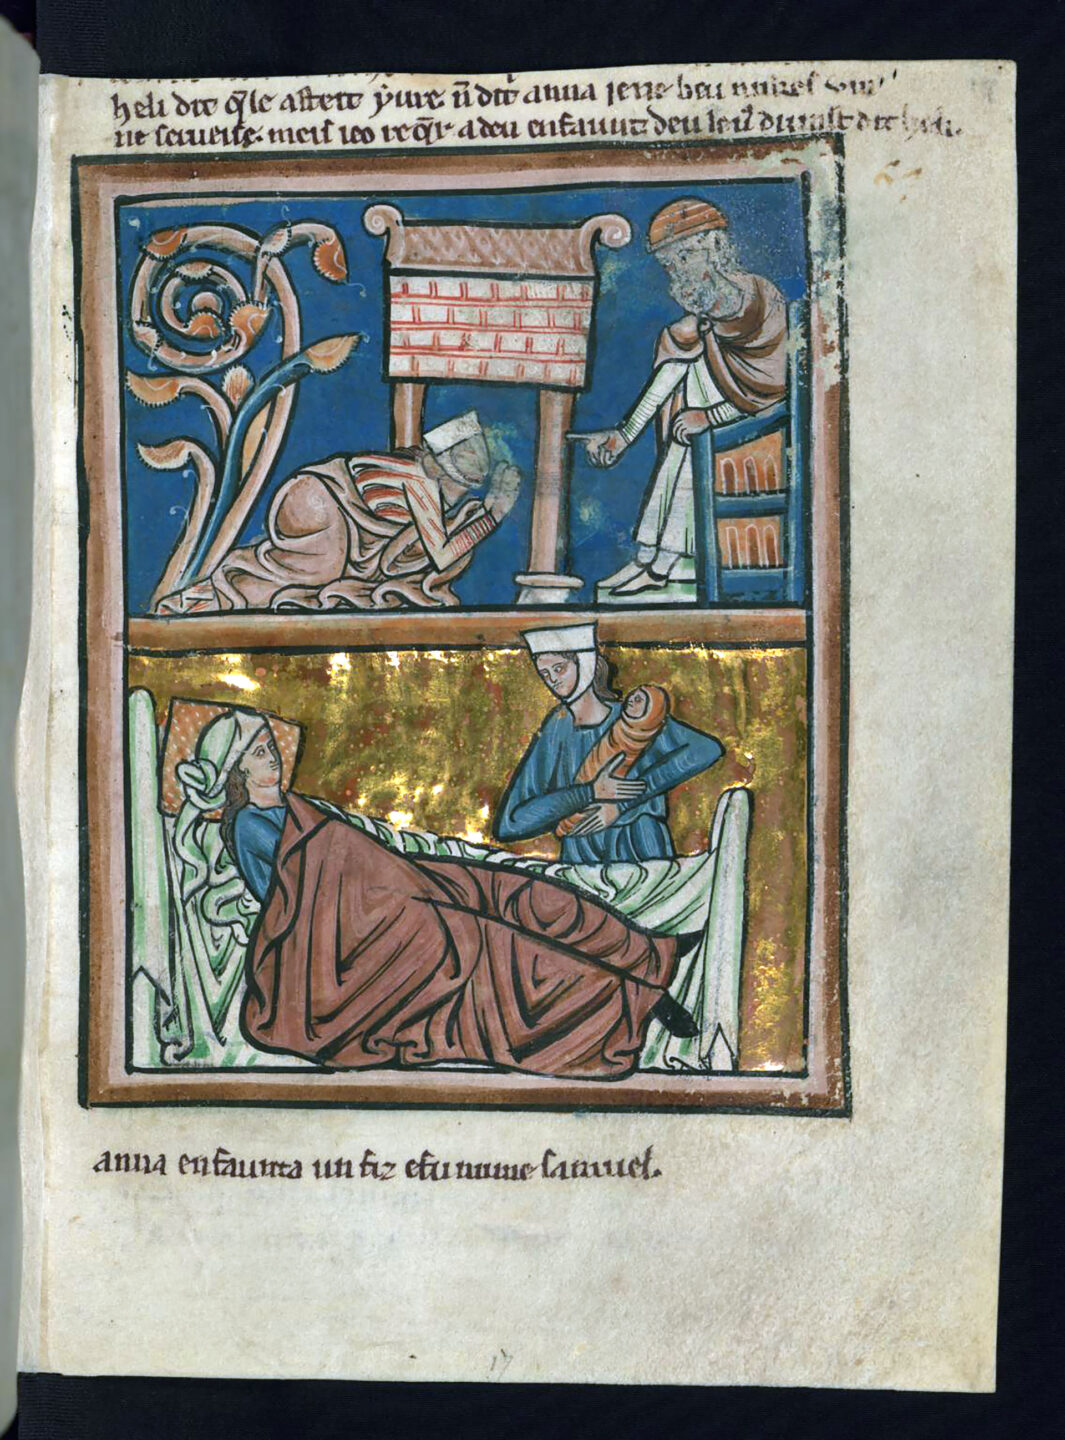 heli dit q̄le asteit yure. n̄ dit anna jene beu
ne serueise. meis ieo req̄r a deu enfaunt. deu le dit heli.
anna enfaunta un fiz e fu nume samuel.
17